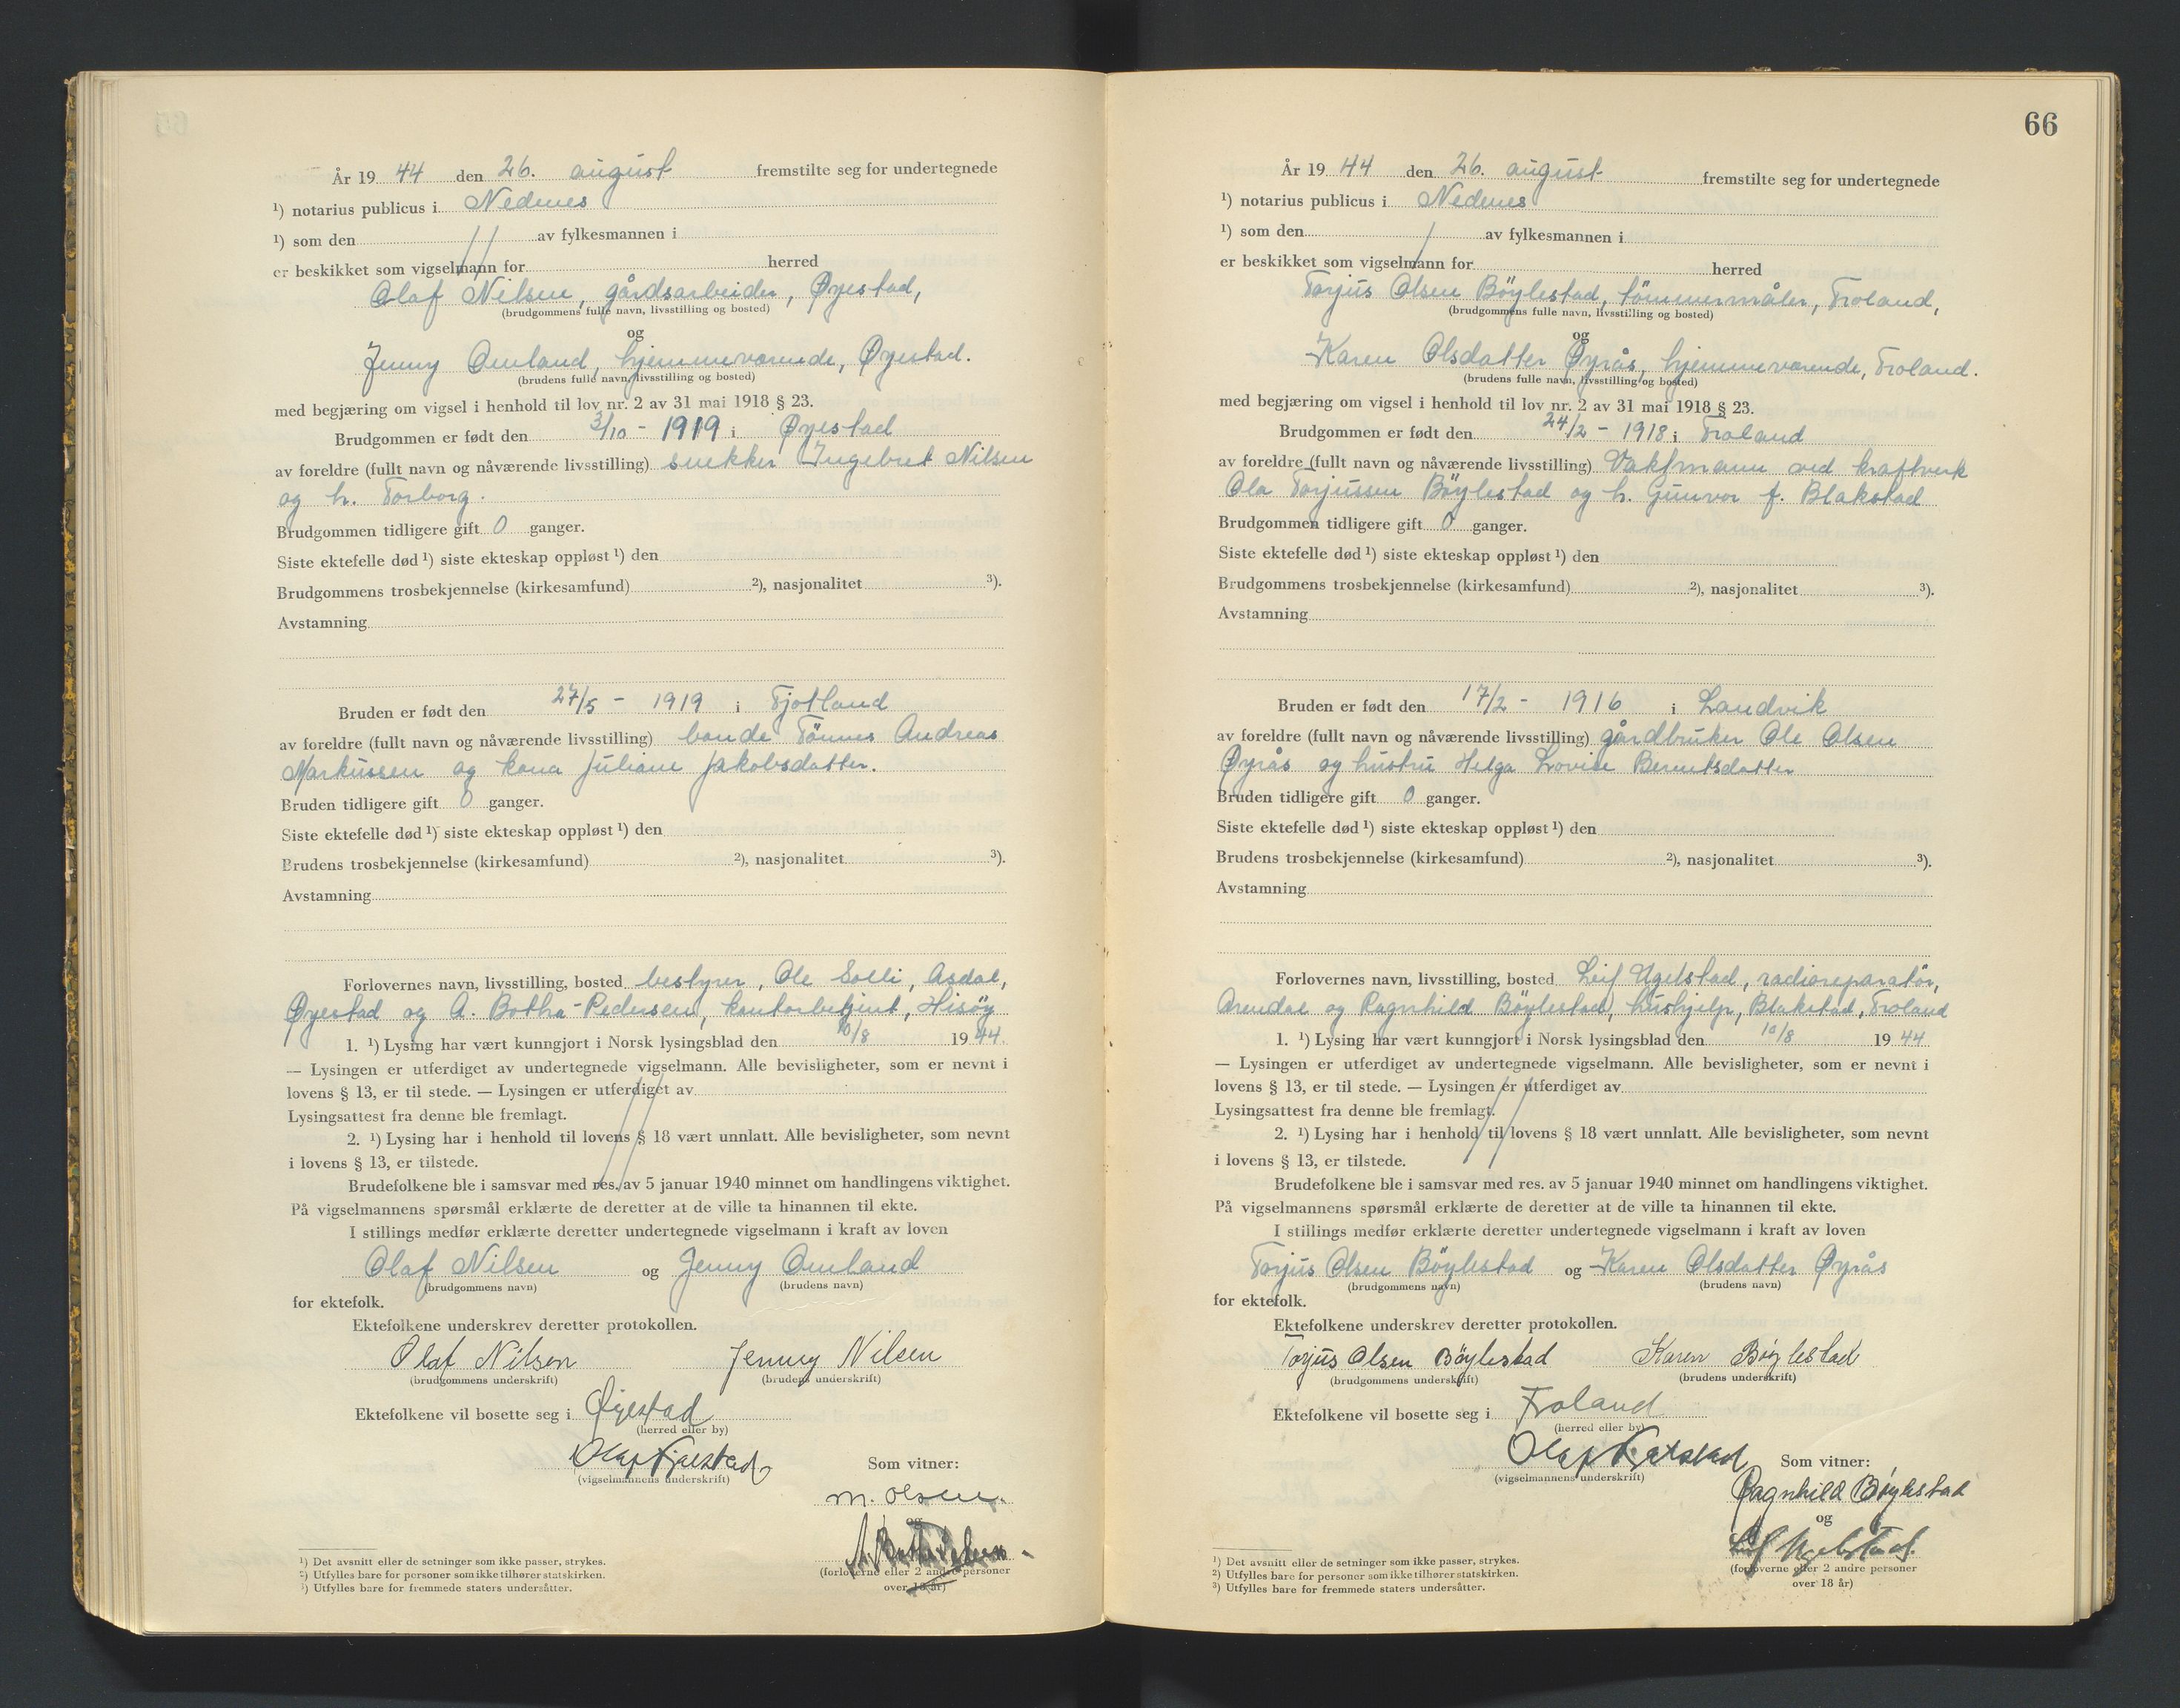 År 19 44 den 26. august fremstilte seg for undertegnede
¹) notarius publicus i Nedenes
¹) som den av fylkesmannen i
er beskikket som vigselmann for herred
Olaf Nilsen, gårdsarbeider, Øyestad,
(brudgommens fulle navn, livsstilling og bosted)
og
Jenny Omland, hjemmeværende, Øyestad.
(brudens fulle navn, livsstilling og bosted)
med begjæring om vigsel i henhold til lov nr. 2 av 31 mai 1918 § 23.
Brudgommen er født den 3/10 - 1919 i Øyestad
av foreldre (fullt navn og nåværende livsstilling) snekker Ingebret Nilsen
og h. Torborg.
Brudgommen tidligere gift 0 ganger.
Siste ektefelle død ¹) siste ekteskap oppløst ¹) den
Brudgommens trosbekjennelse (kirkesamfund) ²), nasjonalitet ³).
Avstamning
Bruden er født den 27/5 - 1919 i Fjotland
av foreldre (fullt navn og nåværende livsstilling) bonde Tönnes Andreas
Markussen og kona Juliane Jakobsdatter.
Bruden tidligere gift 0 ganger.
Siste ektefelle død ¹) siste ekteskap oppløst ¹) den
Brudens trosbekjennelse (kirkesamfund) ²), nasjonalitet ³).
Avstamning
Forlovernes navn, livsstilling, bosted bestyrer, Ole Solli, Asdal,
Øyestad og A. Botha-Pedersen, kontorbetjent, Hisöy
1. ¹) Lysing har vært kunngjort i Norsk lysingsblad den 10/8 19 44.
— Lysingen er utferdiget av undertegnede vigselmann. Alle bevisligheter, som er nevnt i
lovens § 13, er til stede. — Lysingen er utferdiget av
Lysingsattest fra denne ble fremlagt.
2. ¹) Lysing har i henhold til lovens § 18 vært unnlatt. Alle bevisligheter, som nevnt
i lovens § 13, er tilstede.
Brudefolkene ble i samsvar med res. av 5 januar 1940 minnet om handlingens viktighet.
På vigselmannens spørsmål erklærte de deretter at de ville ta hinannen til ekte.
I stillings medfør erklærte deretter undertegnede vigselmann i kraft av loven
Olaf Nilsen og Jenny Omland
(brudgommens navn) (brudens navn)
for ektefolk.
Ektefolkene underskrev deretter protokollen.
Olaf Nilsen Jenny Nilsen
(brudgommens underskrift) (brudens underskrift)
Ektefolkene vil bosette seg i Øyestad
(herred eller by)
Olaf
(vigselmannens underskrift)
Som vitner:
M. Olsen.
og
A. Botha Pedersen
(forloverne eller 2 andre personer
over 18 år)
¹) Det avsnitt eller de setninger som ikke passer, strykes.
²) Utfylles bare for personer som ikke tilhører statskirken.
³) Utfylles bare for fremmede staters undersåtter.
66
År 19 44 den 26. august fremstilte seg for undertegnede
¹) notarius publicus i Nedenes
¹) som den av fylkesmannen i
er beskikket som vigselmann for herred
Torjus Olsen Böylestad, tömmermåler, Froland,
(brudgommens fulle navn, livsstilling og bosted)
og
Karen Olsdatter Øyrås, hjemmeværende, Froland.
(brudens fulle navn, livsstilling og bosted)
med begjæring om vigsel i henhold til lov nr. 2 av 31 mai 1918 § 23.
Brudgommen er født den 24/2 - 1918 i Froland
av foreldre (fullt navn og nåværende livsstilling) Vaktmann ved kraftverk
Ola Torjussen Böylestad og h. Gunvor f. Blakstad
Brudgommen tidligere gift 0 ganger.
Siste ektefelle død ¹) siste ekteskap oppløst ¹) den
Brudgommens trosbekjennelse (kirkesamfund) ²), nasjonalitet ³).
Avstamning
Bruden er født den 17/2 - 1916 i Landvik
av foreldre (fullt navn og nåværende livsstilling) gårdbruker Ole Olsen
Øyrås og hustru Helga Lovise Berntsdatter
Bruden tidligere gift 0 ganger.
Siste ektefelle død ¹) siste ekteskap oppløst ¹) den
Brudens trosbekjennelse (kirkesamfund) ²), nasjonalitet ³).
Avstamning
Forlovernes navn, livsstilling, bosted Leif Ugelstad, radioreparatör,
Arendal og Ragnhild Böylestad, hushjelp, Blakstad, Froland
1. ¹) Lysing har vært kunngjort i Norsk lysingsblad den 10/8 19 44
— Lysingen er utferdiget av undertegnede vigselmann. Alle bevisligheter, som er nevnt i
lovens § 13, er til stede. — Lysingen er utferdiget av
Lysingsattest fra denne ble fremlagt.
2. ¹) Lysing har i henhold til lovens § 18 vært unnlatt. Alle bevisligheter, som nevnt
i lovens § 13, er tilstede.
Brudefolkene ble i samsvar med res. av 5 januar 1940 minnet om handlingens viktighet.
På vigselmannens spørsmål erklærte de deretter at de ville ta hinannen til ekte.
I stillings medfør erklærte deretter undertegnede vigselmann i kraft av loven
Torjus Olsen Böylestad og Karen Olsdatter Øyrås
(brudgommens navn) (brudens navn)
for ektefolk.
Ektefolkene underskrev deretter protokollen.
Torjus Olsen Böylestad Karen Bøylestad
(brudgommens underskrift) (brudens underskrift)
Ektefolkene vil bosette seg i Froland
(herred eller by)
Olaf
(vigselmannens underskrift)
Som vitner:
Ragnhild Bøylestad
og
Leif Ugelstad.
(forloverne eller 2 andre personer
over 18 år)
¹) Det avsnitt eller de setninger som ikke passer, strykes.
²) Utfylles bare for personer som ikke tilhører statskirken.
³) Utfylles bare for fremmede staters undersåtter.